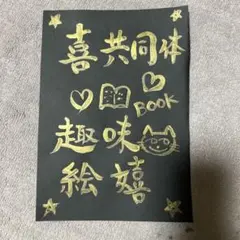 喜共同体
BOOK
趣味
絵嬉